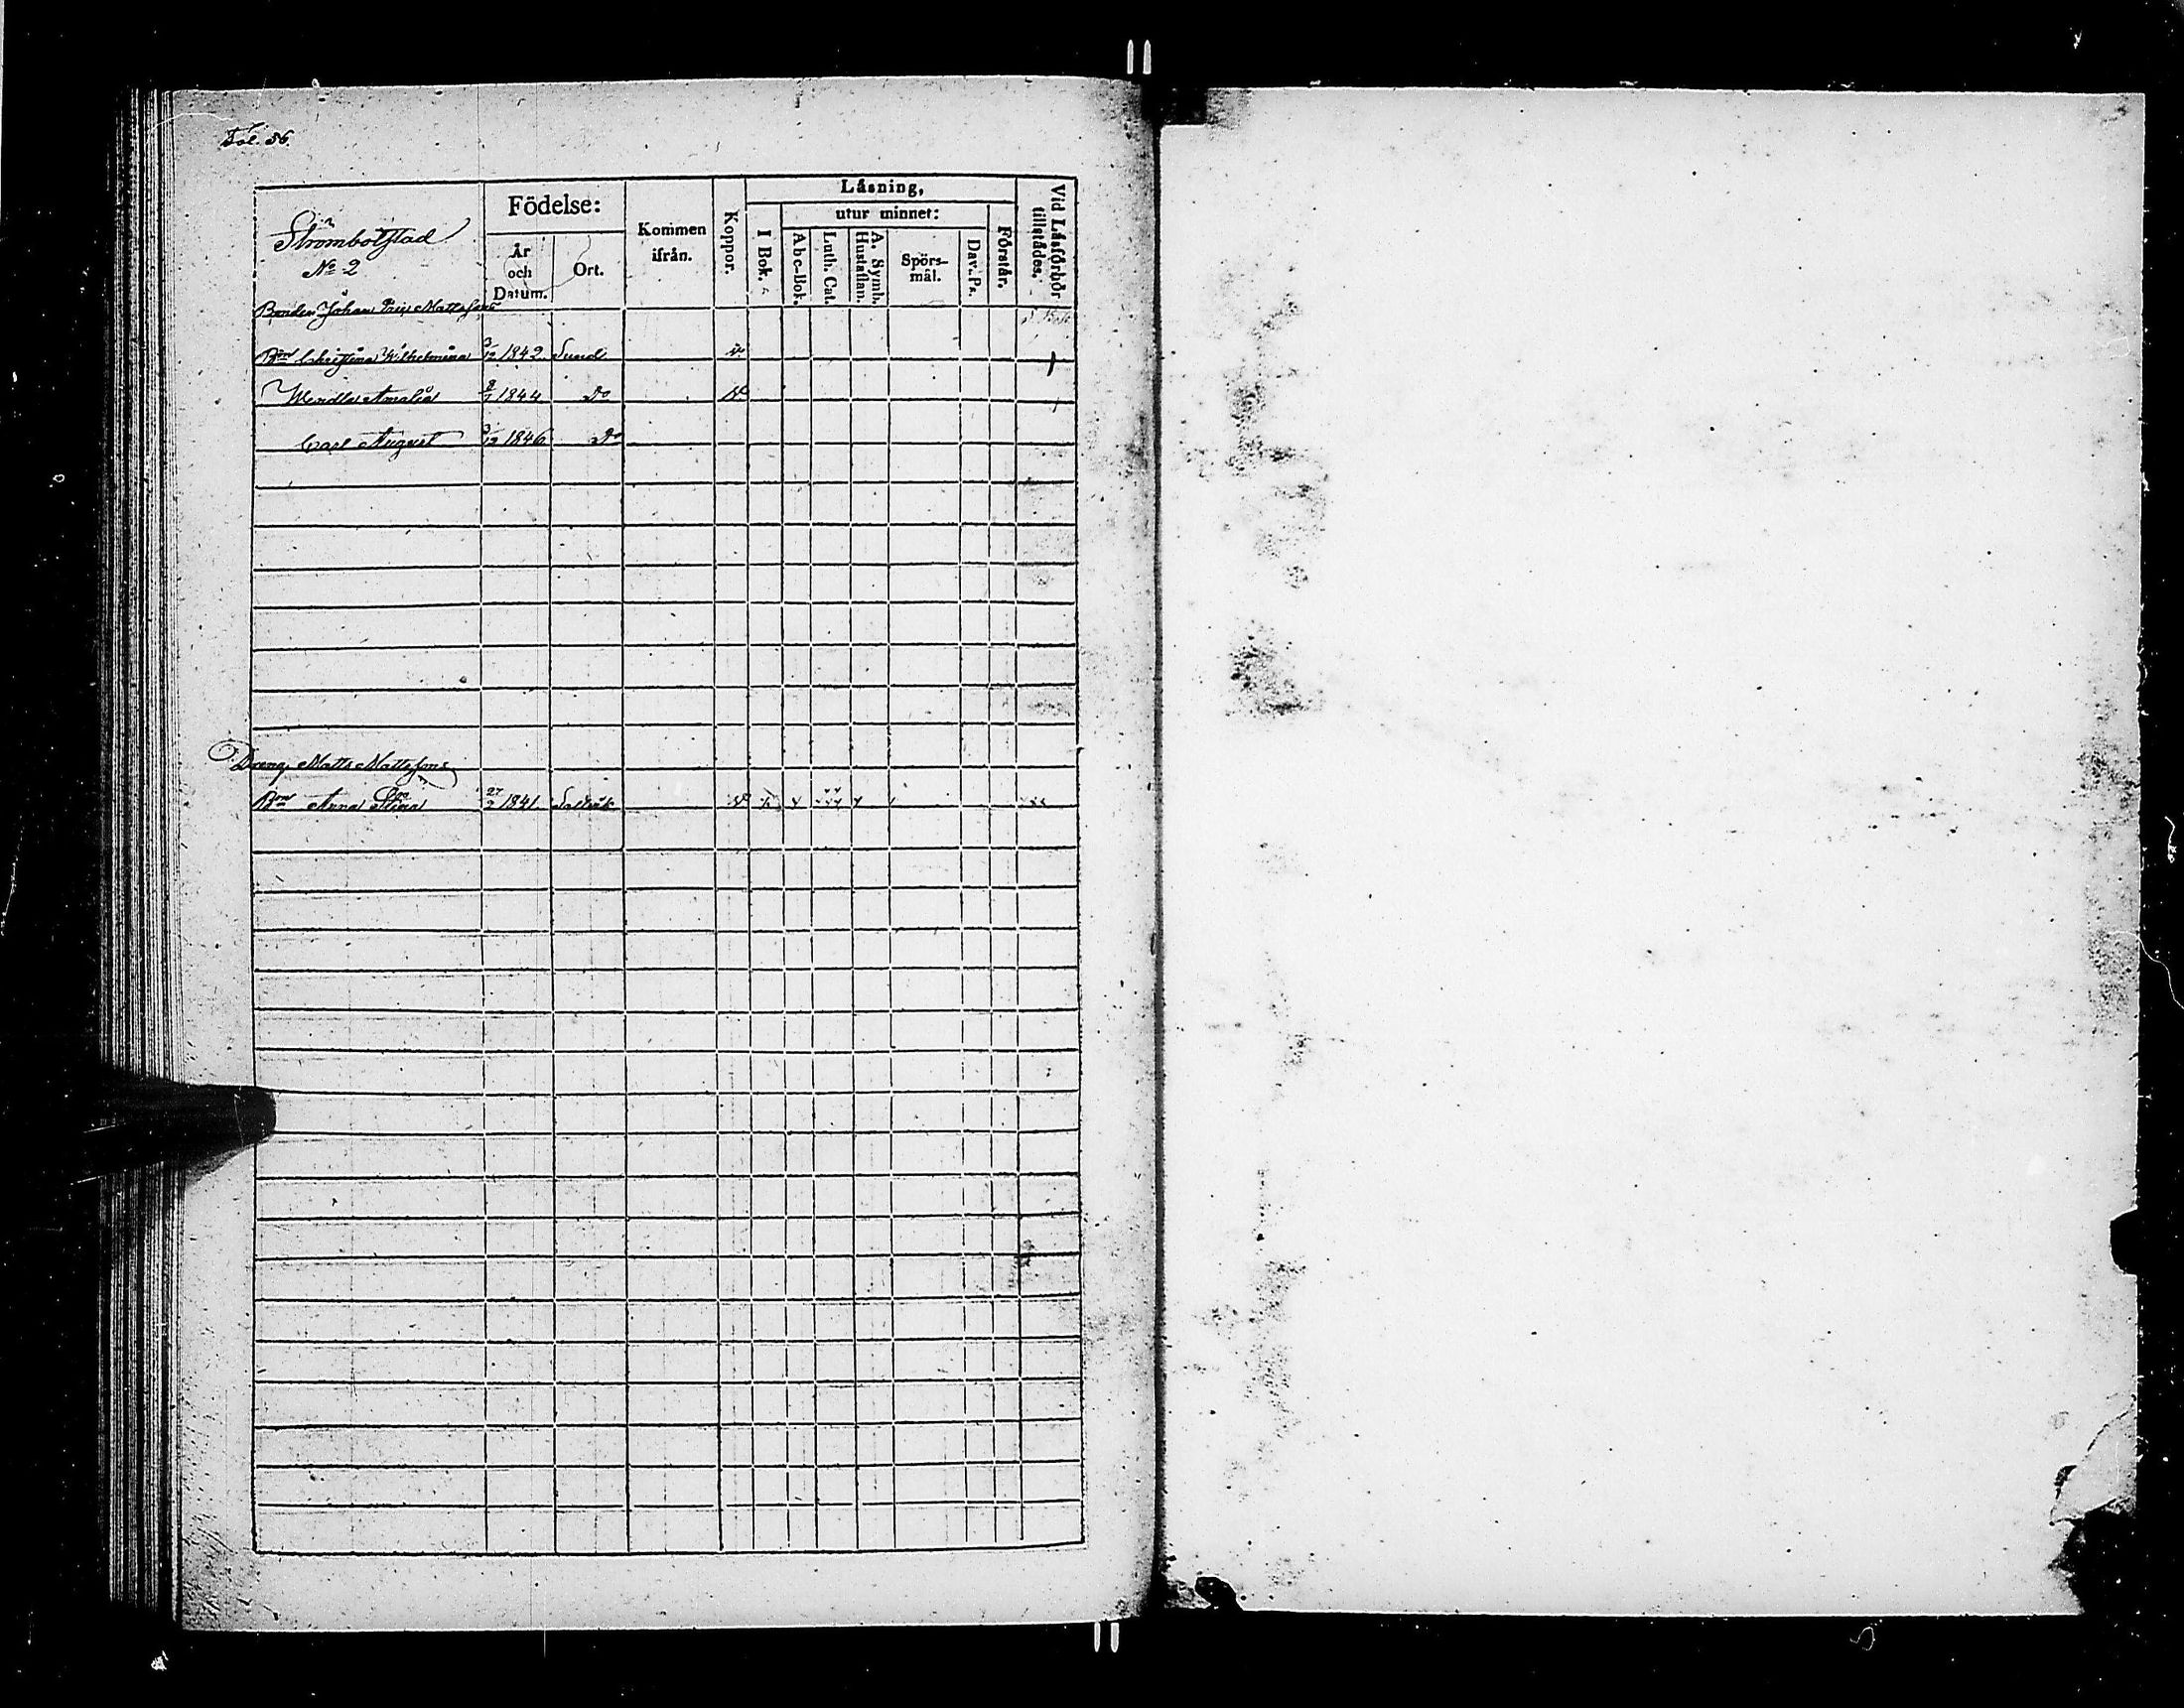 Fol. 56.
Strömbolstad
No 2
Födelse:
År och Datum.
Ort.
Kommen ifrån.
Koppor.
Läsning,
I Bok.
utur minnet:
Abc-Bok.
Luth. Cat.
A. Symb. Hustaflan.
Spörsmål.
Dav. Ps.
Förstår.
Vid Läsförhör tillstädes.
Bonden Johan Mattssons
Bn Christina Wilhelmina 3/12 1842 Sund v.
Wendla Amalia 1844 Do v.
Carl August 3/12 1846 Do
Dreng. Matts Mattssons
Bn Anna Stina 27/2 1841. Saltvik v.